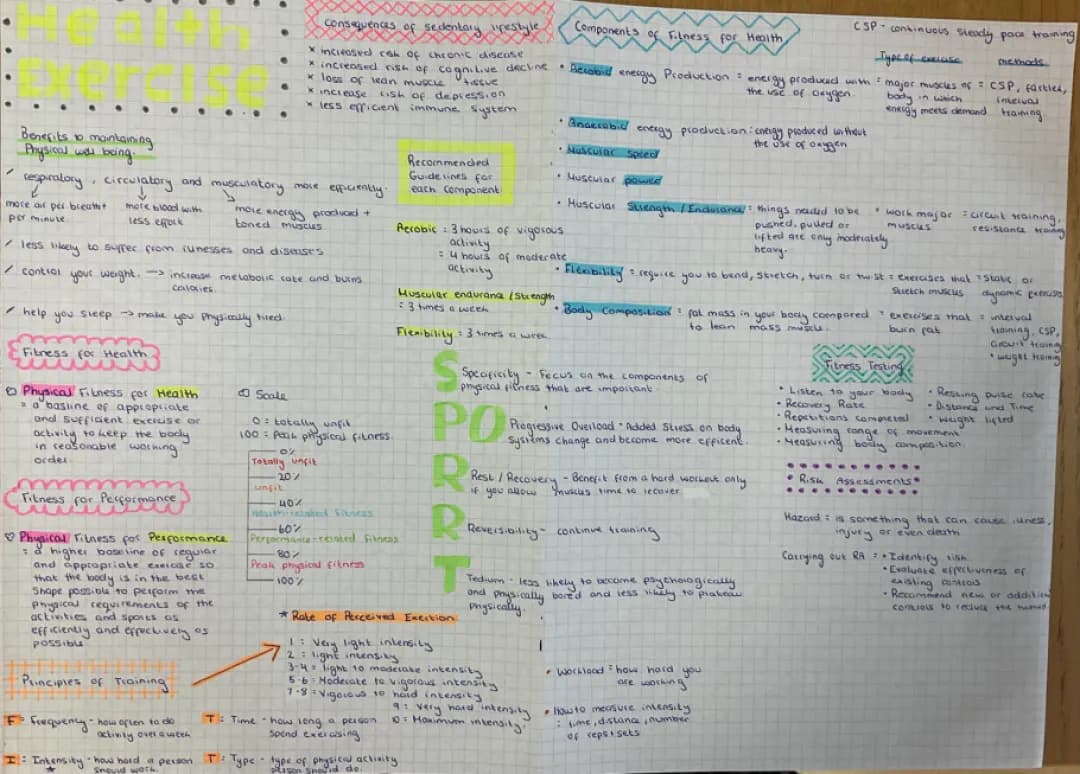 Health
Exercise
Benefits to maintaining
Physical well being.
/ respiratory, circulatory and musculatory more efficiently.
more air per breath + per minute.
more blood with less effort
more energy produced + toned muscles
/ less likely to suffer from illnesses and diseases
/ control your weight. → increase metabolic rate and burns
calories.
/ help you sleep → make you physically tired.
Fitness for Health
Physical Fitness for Health
= a basline of appropriate
and sufficient exercise or
activity to keep the body
in reasonable working
order.
Fitness for Performance
Physical Fitness for Performance
= a higher baseline of regular
and appropriate exercise so
that the body is in the best
shape possible to perform the
physical requirements of the
activities and sports as
efficiently and effectively as
possible
Scale
0 = totally unfit
100 = Peak physical fitness.
0%
Totally unfit
20%
unfit
40%
Health-related fitness
60%
Performance-related fitness
80%
Peak physical fitness
100%
Principles of Training
* Rate of Perceived Exertion
1 = Very light intensity
2 = light intensity
3-4 = light to moderate intensity
5-6 = Moderate to vigorous intensity
7-8 = Vigorous to hard intensity
9 = Very hard intensity
10 = Maximum intensity.
F = Frequency - how often to do
activity over a week
I = Intensity - how hard a person
should work.
*
T = Time - how long a person
spend exercising
T = Type - type of physical activity
person should do.
Consequences of sedentary lifestyle
x increased risk of chronic disease
x increased risk of cognitive decline
x loss of lean muscle tissue
x increase risk of depression
x less efficient immune system
Recommended
Guidelines for
each component
Aerobic = 3 hours of vigorous
activity
= 4 hours of moderate
activity
Muscular endurance / Strength
= 3 times a week
Flexibility = 3 times a week
SPORRT
Specificity - Focus on the components of
physical fitness that are important.
Progressive Overload - Added Stress on body
Systems change and become more efficent.
Rest / Recovery - Benefit from a hard workout only
if you allow muscles time to recover
Reversibility - continue training
Tedium - less likely to become psychologically
and physically bored and less likely to plateau
physically.
• Workload = how hard you
are working
• How to measure intensity
= time, distance, number
of reps + sets
Components of Fitness for Health
CSP - continuous steady pace training
Type of exercise methods
• Aerobic energy Production = energy produced with
the use of oxygen.
= major muscles of
body in which
energy meets demand
= CSP, fartlek,
interval
training.
• Anaerobic energy production = energy produced without
the use of oxygen
• Muscular speed
• Muscular power
• Muscular Strength / Endurance = things needed to be
pushed, pulled or
lifted are only moderately
heavy.
* work major
muscles
= circuit training,
resistance training
• Flexibility = require you to bend, stretch, turn or twist
= exercises that
stretch muscles
= static or
dynamic exercises
• Body Composition = fat mass in your body compared
to lean mass muscle.
= exercises that
burn fat
= interval
training, CSP,
circuit training
• weight training
Fitness Testing
• Listen to your body
• Recovery Rate
• Repetitions completed
• Measuring range of movement
• Measuring body composition.
• Resting pulse rate
• Distance and Time
• Weight lifted
Risk Assessments
Hazard = is something that can cause illness,
injury or even death
Carrying out RA = • Identify risk
• Evaluate effectiveness of
existing controls
• Recommend new or addition
controls to reduce the